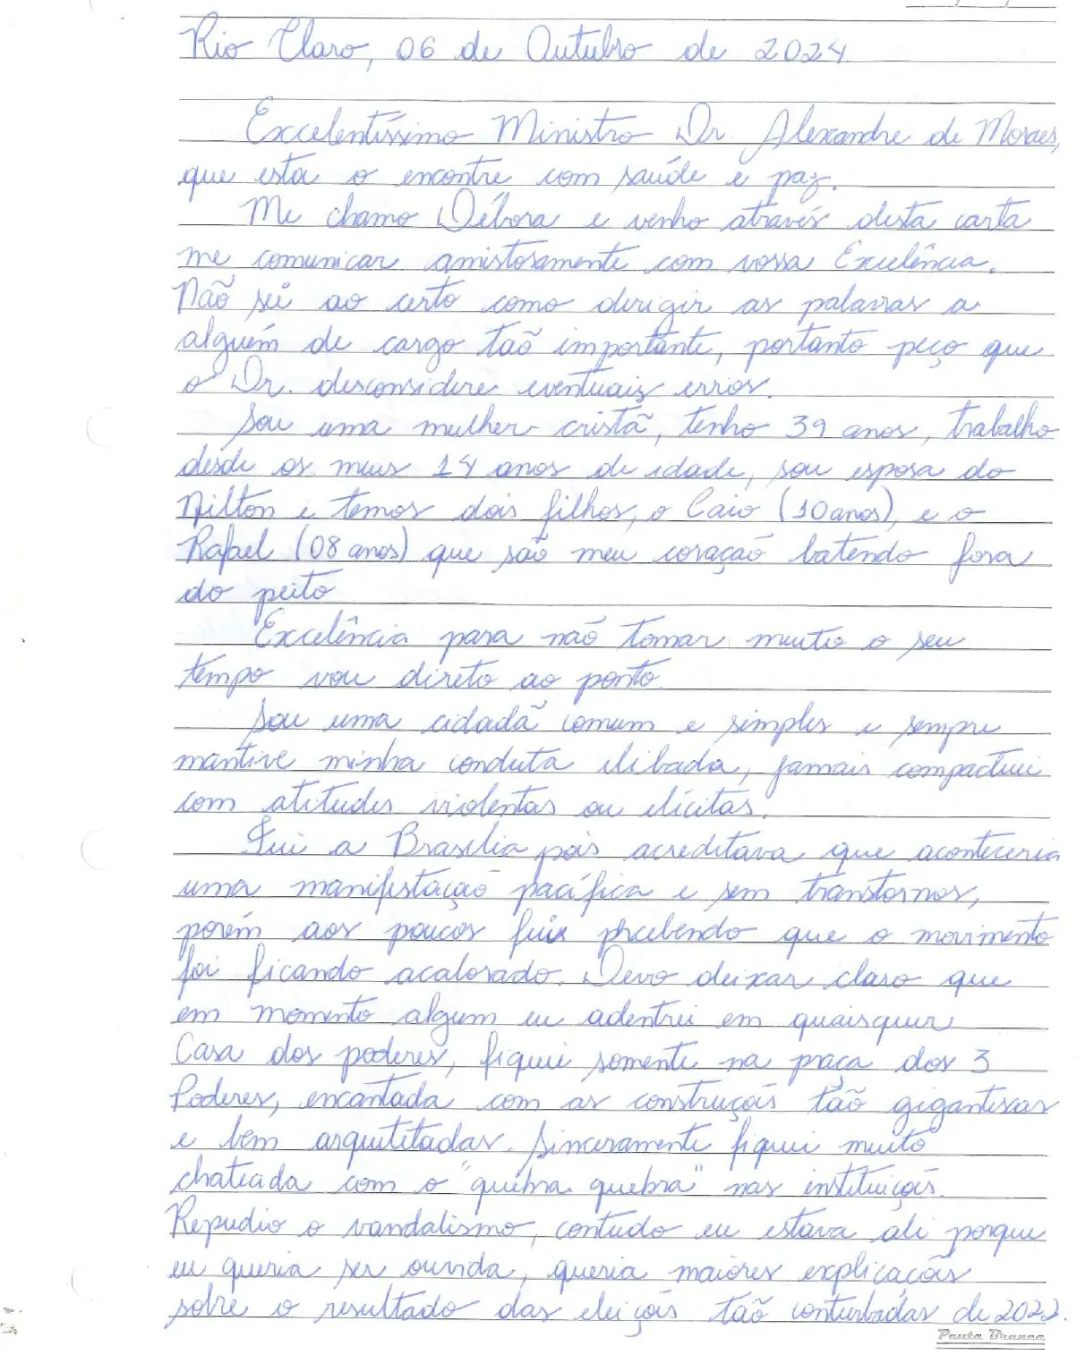 Rio Claro, 06 de Outubro de 2024.
Excelentíssimo Ministro Dr. Alexandre de Moraes,
que esta o encontre com saúde e paz.
Me chamo Débora e venho através desta carta
me comunicar amistosamente com vossa Excelência.
Não sei ao certo como dirigir as palavras a
alguém de cargo tão importante, portanto peço que
o Dr. desconsidere eventuais erros.
Sou uma mulher cristã, tenho 39 anos, trabalho
desde os meus 14 anos de idade, sou esposa do
Nilton e temos dois filhos, o Caio (10 anos), e o
Rafael (08 anos) que são meu coração batendo fora
do peito
Excelência para não tomar muito o seu
tempo vou direto ao ponto.
Sou uma cidadã comum e simples e sempre
mantive minha conduta ilibada, jamais compactuei
com atitudes violentas ou ilícitas.
Fui a Brasília pois acreditava que aconteceria
uma manifestação pacífica e sem transtornos,
porém aos poucos fui percebendo que o movimento
foi ficando acalorado. Devo deixar claro que
em momento algum eu adentrei em quaisquer
Casa dos poderes, fiquei somente na praça dos 3
Poderes, encantada com as construções tão gigantescas
e bem arquitetadas. Sinceramente fiquei muito
chateada com o "quebra quebra" nas instituições.
Repudio o vandalismo, contudo eu estava ali porque
eu queria ser ouvida, queria maiores explicações
sobre o resultado das eleições tão conturbadas de 2022.
Pauta Branca